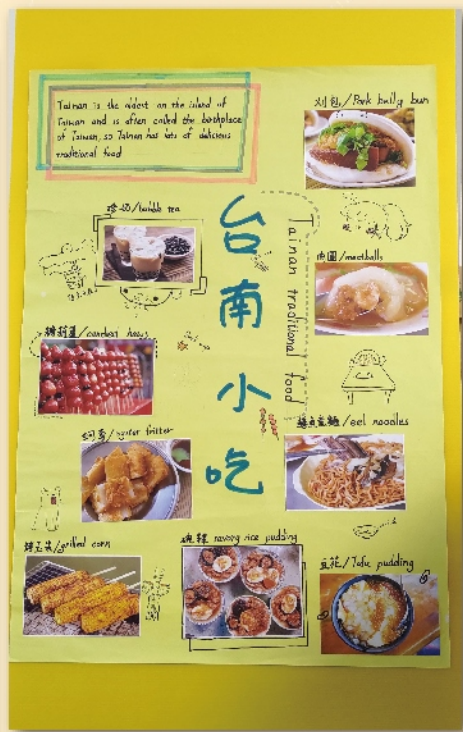 Tainan is the oldest on the island of
Taiwan and is often called the birthplace
of Taiwan, so Tainan has lots of delicious
traditional food
刈包/Pork belly bun
珍奶/bubble tea
台南小吃
Tainan traditional food
肉圓/meatballs
糖葫蘆/candied haws
蚵嗲/oyster fritter
鱔魚意麵/eel noodles
烤玉米/grilled corn
碗粿 savory rice pudding
豆花/Tofu pudding